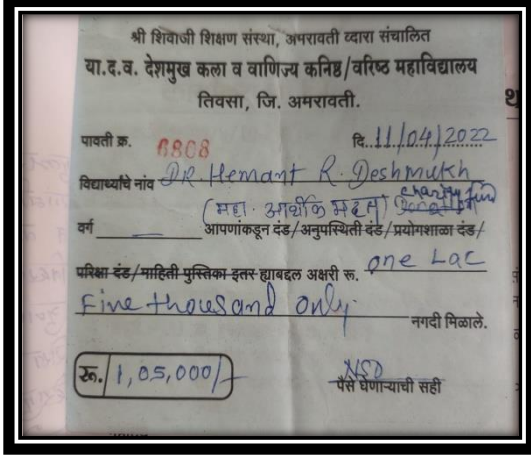 श्री शिवाजी शिक्षण संस्था, अमरावती व्दारा संचालित
या.द.व. देशमुख कला व वाणिज्य कनिष्ठ/वरिष्ठ महाविद्यालय
तिवसा, जि. अमरावती.
पावती क्र. 6808 दि. 11/04/2022
विद्यार्थ्याचे नांव DR. Hemant R. Deshmukh
(महा. आर्थीक मदत) charity fund
वर्ग — आपणांकडून दंड/अनुपस्थिती दंड/प्रयोगशाळा दंड/
परिक्षा दंड/माहिती पुस्तिका इतर ह्याबद्दल अक्षरी रू. one Lac
Five thousand only. नगदी मिळाले.
रू. 1,05,000/-
पैसे घेणाऱ्याची सही